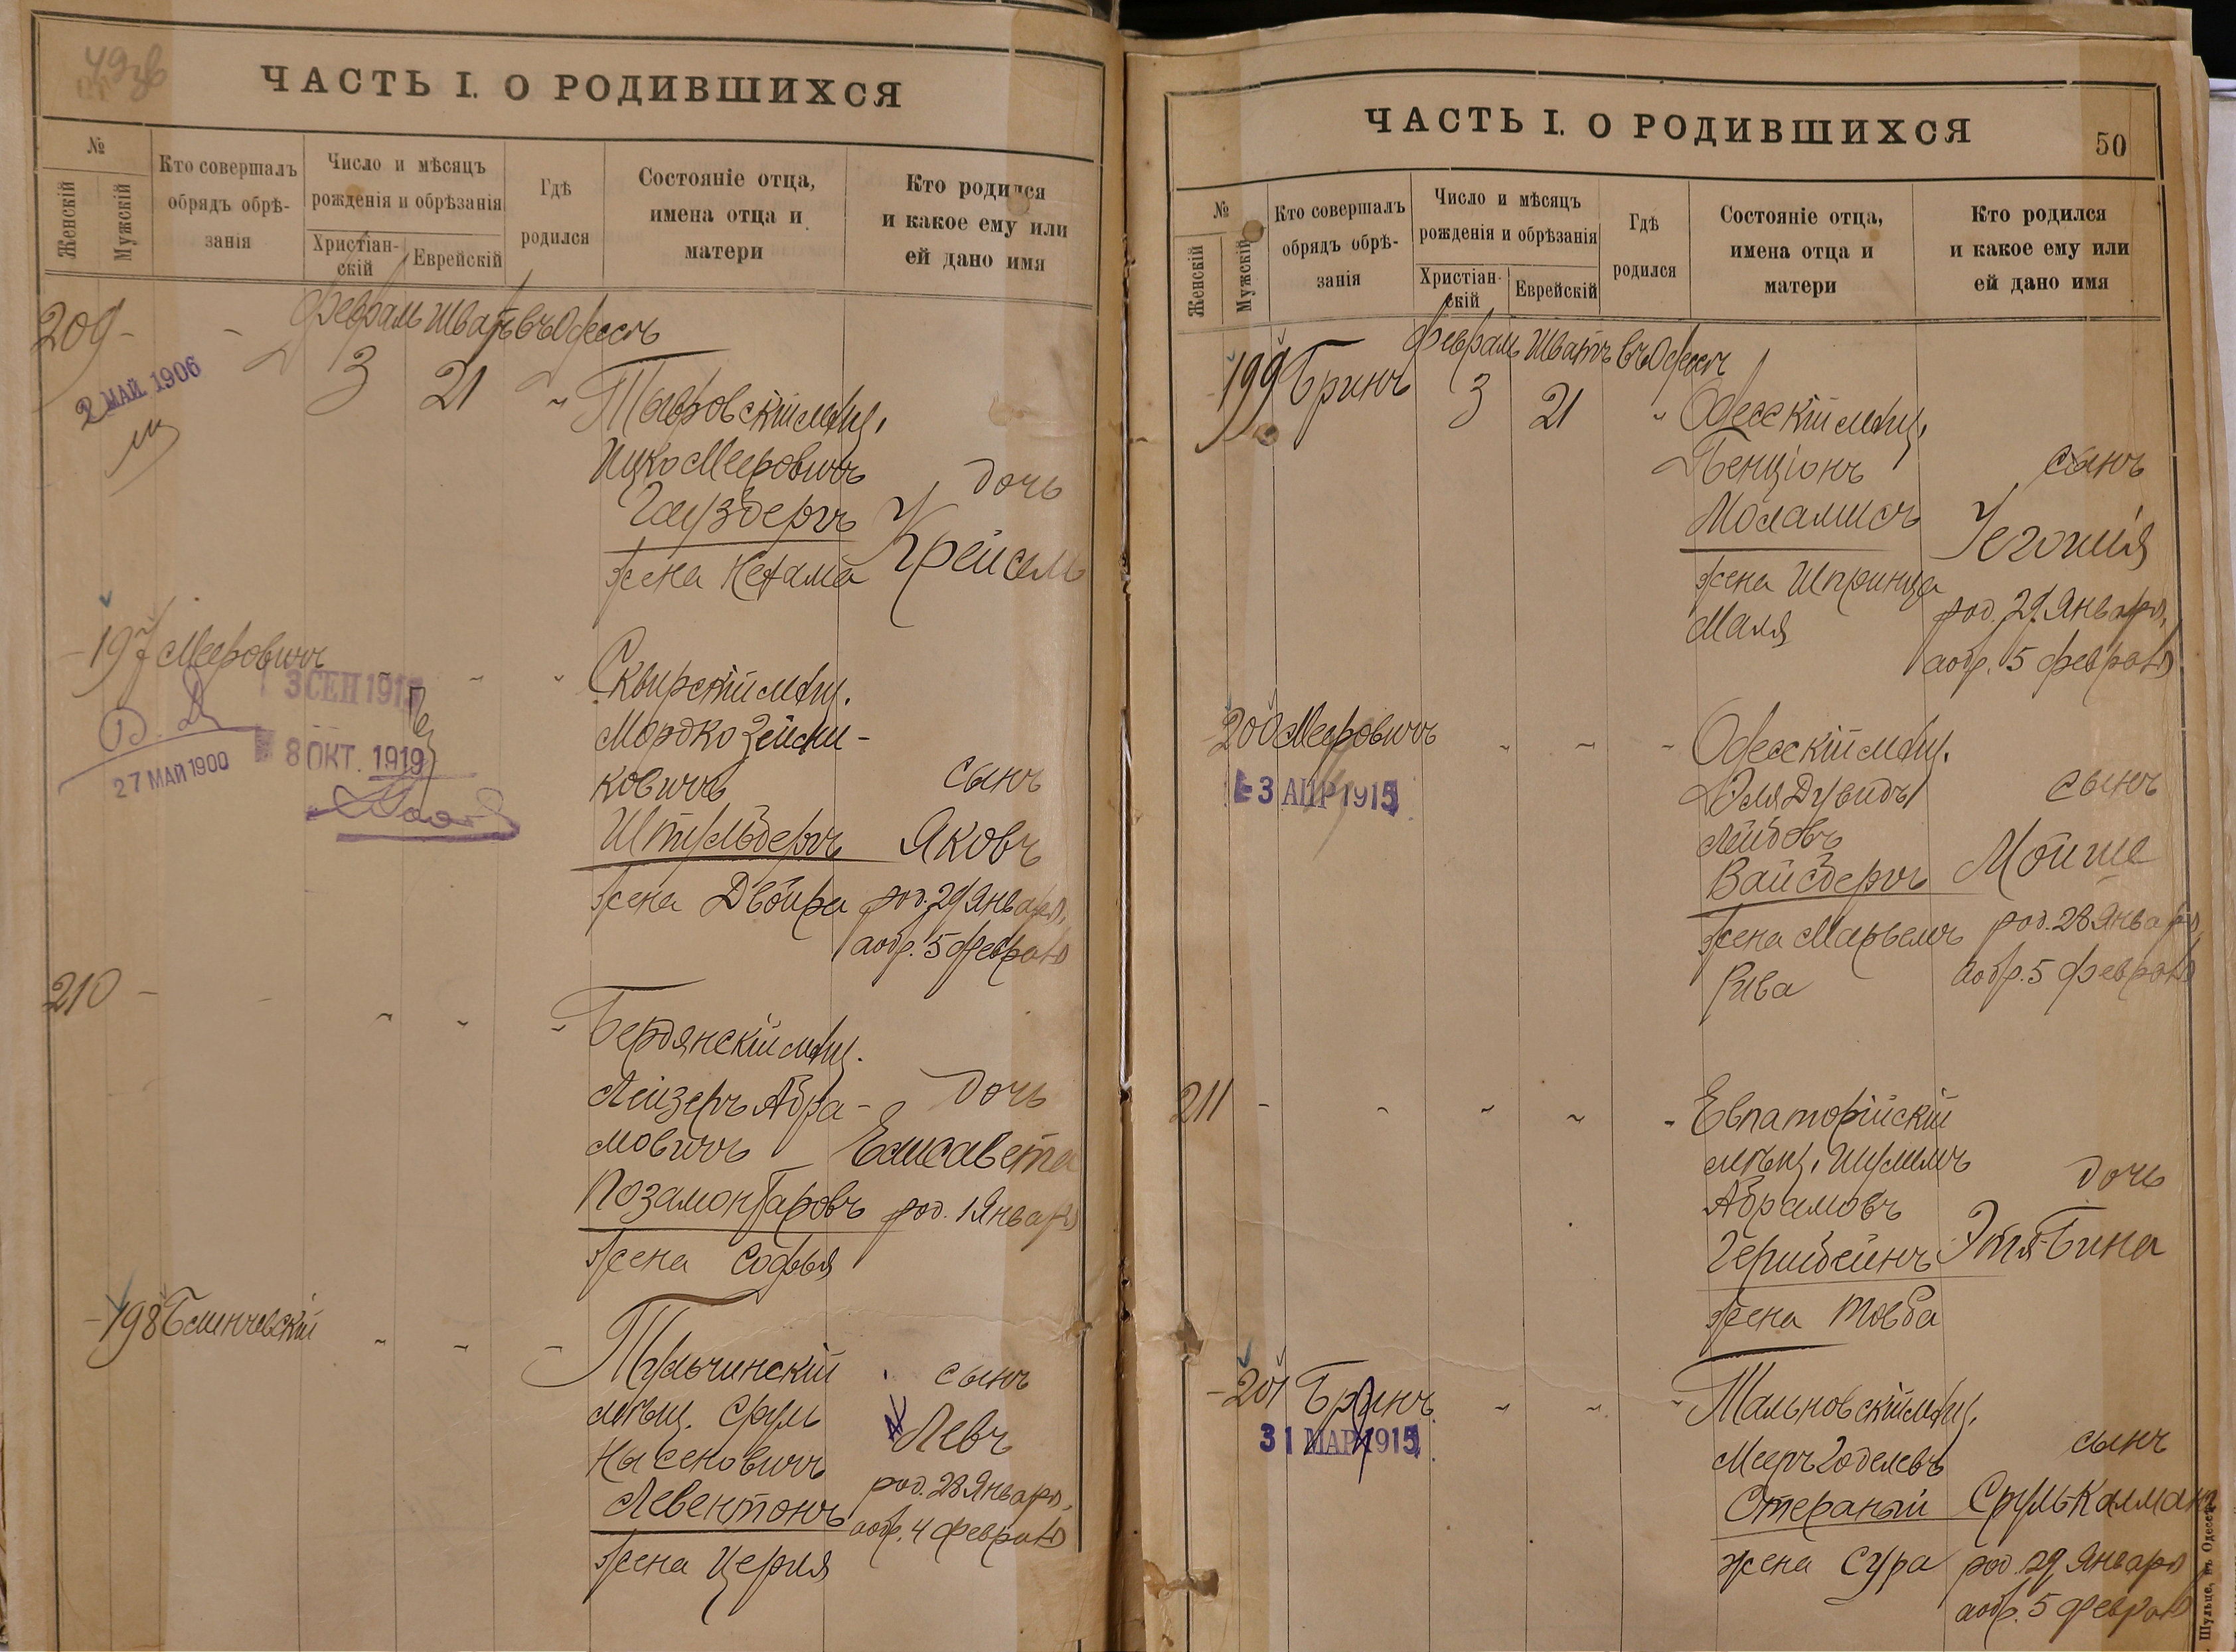 ЧАСТЬ I. О РОДИВШИХСЯ
№
Женскій
Мужскій
Кто совершалъ
обрядъ обрѣ-
занія
Число и мѣсяцъ
рожденія и обрѣзанія
Христіан-
скій
Еврейскій
Гдѣ
родился
Состояніе отца,
имена отца и
матери
Кто родился
и какое ему или
ей дано имя
209 -
Февраль Шватъ въ Одессѣ
3 21
2 МАЙ 1906
мѣщ.
Ицко Мееровичъ
Гаузбергъ
жена Нехама
дочь
Крейсель
197 Мееровичъ
3 СЕН 1915
8 ОКТ. 1919
27 МАЙ 1900
Сквирскій мѣщ.
Мордко Зейли-
ковичъ
Штульбергъ
жена Двойра
сынъ
Яковъ
род. 29 Января,
а обр. 5 февраля
210 -
Бердянскій мѣщ.
Лейзеръ Абра-
мовичъ
Позамонтировъ
жена Софья
дочь
Елисавета
род. 1 Января
198 Блинчевскій
Тульчинскій
мѣщ. Сруль
Нысеновичъ
Левентонъ
жена Церля
сынъ
Левъ
род. 28 Января,
а обр. 4 февраля
ЧАСТЬ I. О РОДИВШИХСЯ
50
№
Женскій
Мужскій
Кто совершалъ
обрядъ обрѣ-
занія
Число и мѣсяцъ
рожденія и обрѣзанія
Христіан-
скій
Еврейскій
Гдѣ
родился
Состояніе отца,
имена отца и
матери
Кто родился
и какое ему или
ей дано имя
Февраль Шватъ въ Одессѣ
199 Бринъ 3 21
Одесскій мѣщ.
Бенціонъ
Моламисъ
жена Шпринца
Маля
сынъ
Іегошія
род. 29 Января,
а обр. 5 февраля
200 Мееровичъ
3 АПР 1915
Одесскій мѣщ.
Эля Дувидъ
Лейбовъ
Вайсбергъ
жена Марьемъ
Рива
сынъ
Мойше
род. 28 Января,
а обр. 5 февраля
211 -
Евпаторійскій
мѣщ. Шулимъ
Абрамовъ
Гершбейнъ
жена Товба
дочь
Этя-Бина
201 Бринъ
31 МАР 1915
Тальновскій мѣщ.
Мееръ Годелевъ
жена Сура
сынъ
Сруль-Калманъ
род. 29 Января
а обр. 5 февраля
Шульце, въ Одессѣ